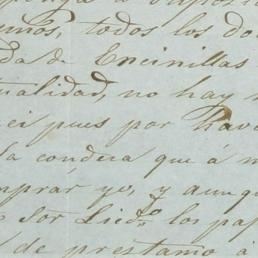 todos los do
da de Encinillas
ualidad, no hay
ci pues por
sa condesa que á m
mprar yo, y aunq
Sor Licdo. los pa
de prestamo á